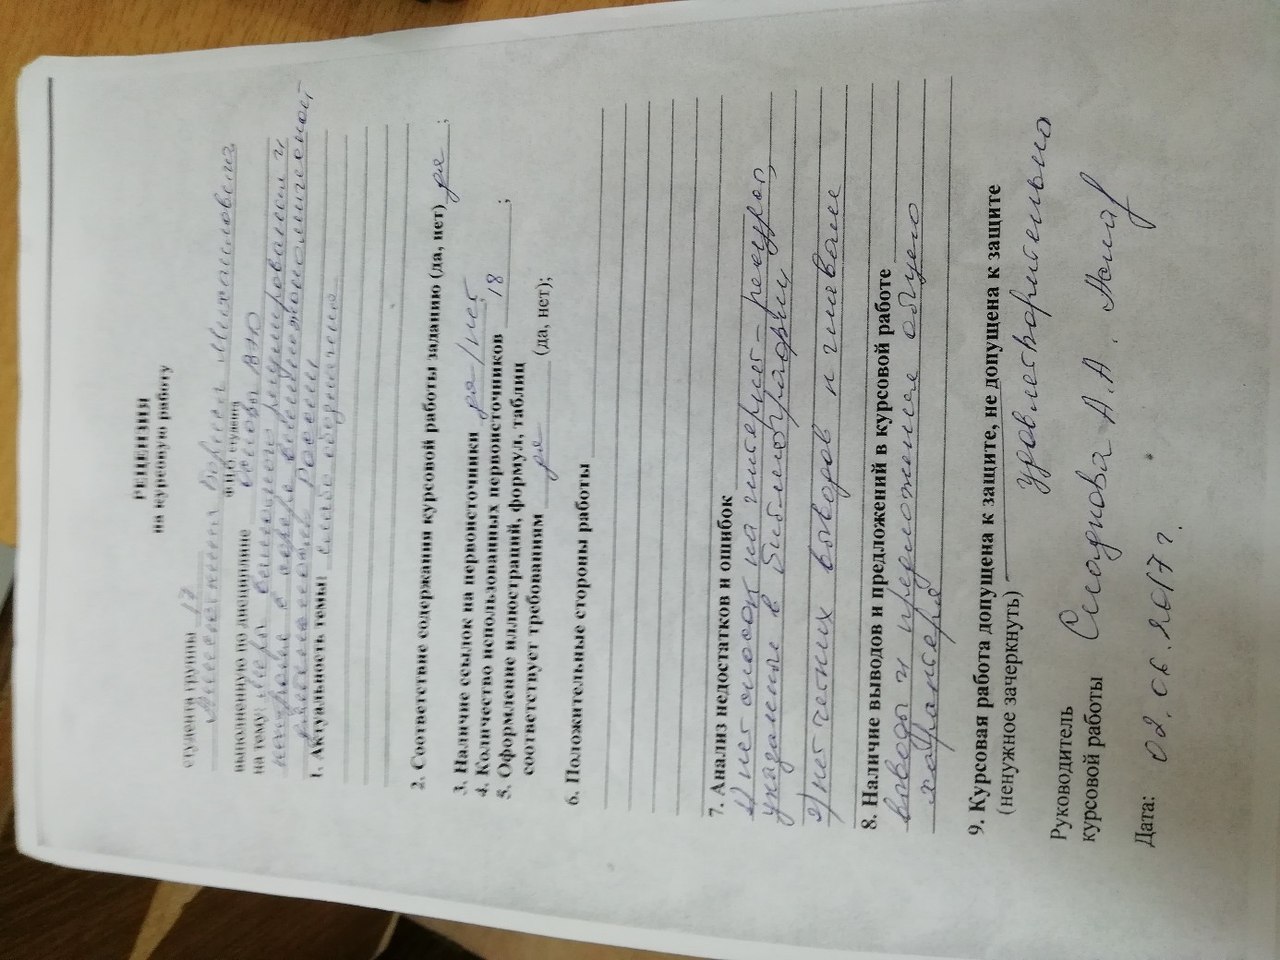 РЕЦЕНЗИЯ
на курсовую работу
студента группы 17
Михайловича
Ф И О студента
выполненную по дисциплине основы ВЭЮ
на тему: Меры регулирования и
контроля в сфере внешнеэкономической
деятельности России
1. Актуальность темы: слабо обозначена
2. Соответствие содержания курсовой работы заданию (да, нет) да ;
3. Наличие ссылок на первоисточники да/нет
4. Количество использованных первоисточников 18 ;
5. Оформление иллюстраций, формул, таблиц
соответствует требованиям да (да, нет);
6. Положительные стороны работы
7. Анализ недостатков и ошибок
1) нет сносок на интернет-ресурсы,
указанные в библиографии
2) нет четких выводов к главам
8. Наличие выводов и предложений в курсовой работе
выводы и предложения общего
характера
9. Курсовая работа допущена к защите, не допущена к защите
(ненужное зачеркнуть) удовлетворительно
Руководитель
курсовой работы А.А.
Дата: 02.06.2017 г.